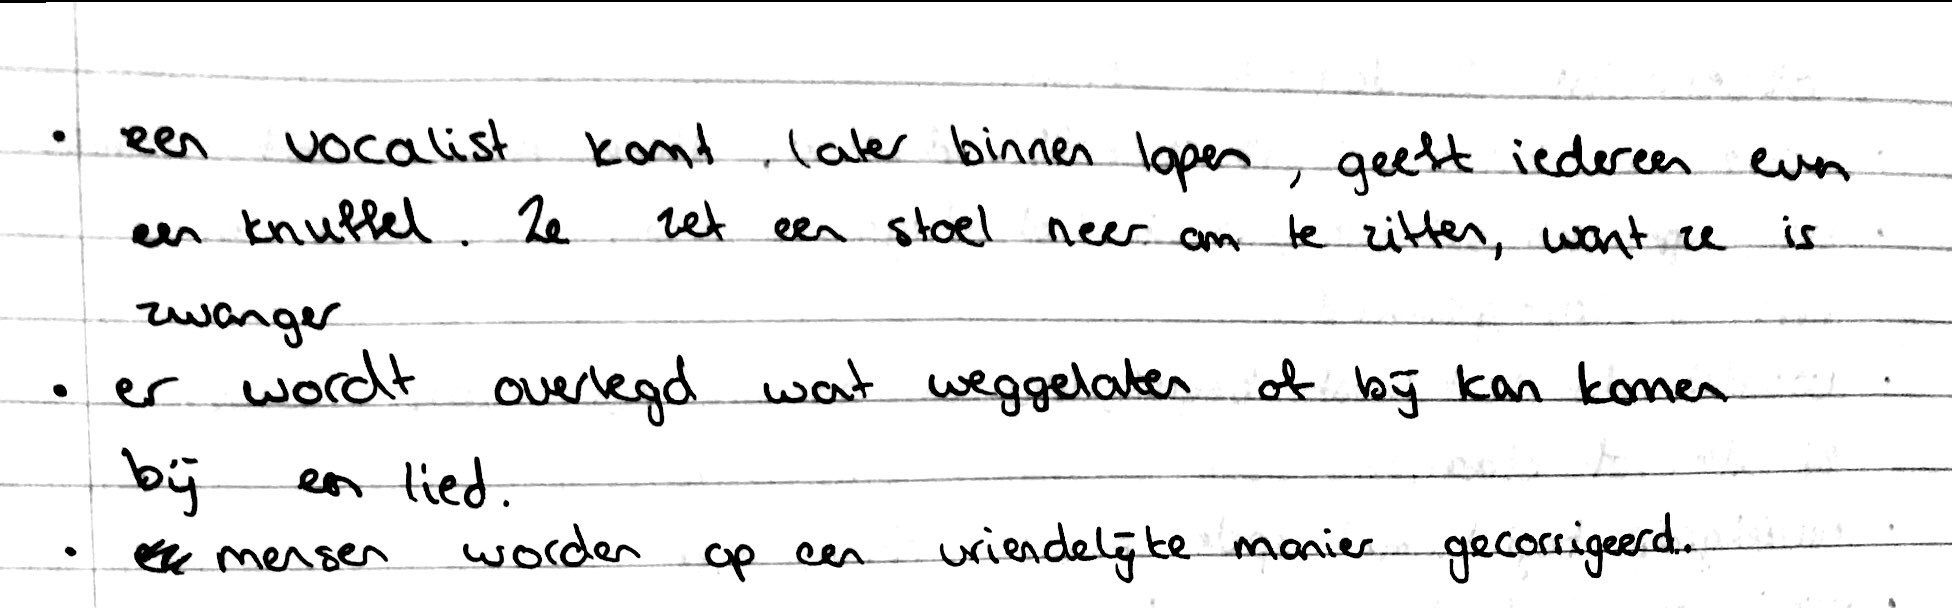 • een vocalist komt later binnen lopen, geeft iedereen even
een knuffel. Ze zet een stoel neer om te zitten, want ze is
zwanger
• er wordt overlegd wat weggelaten of bij kan komen
bij een lied.
• mensen worden op een vriendelijke manier gecorrigeerd.